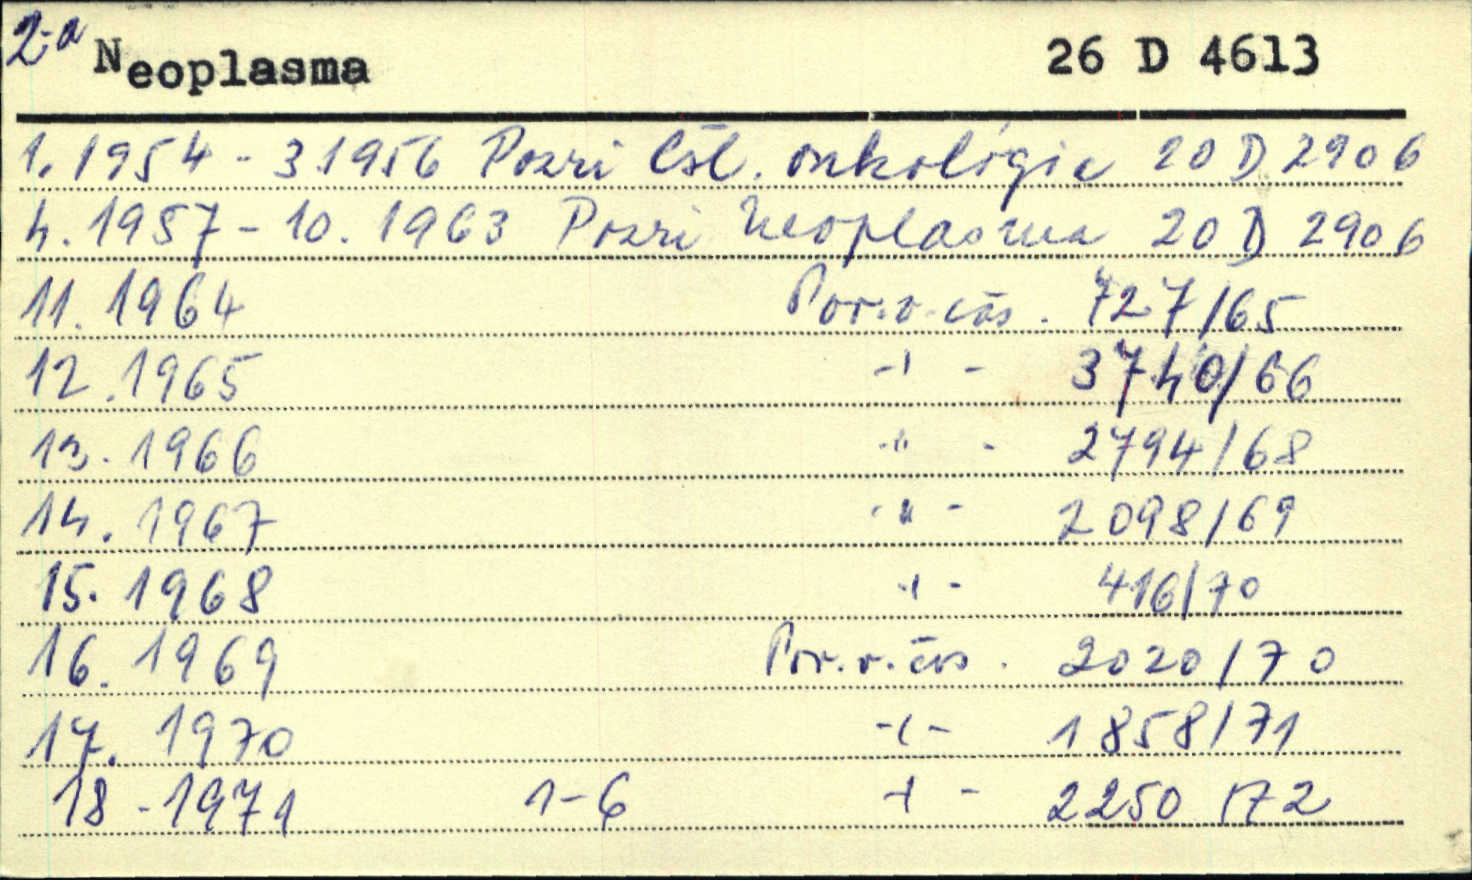 2-a Neoplasma 26 D 4613
1. 1954 - 3.1956 Pozri Čsl. onkológia 20 D 2906
4. 1957 - 10. 1963 Pozri Neoplasma 20 D 2906
11. 1964 Por. v. čas. 727/65
12. 1965 -"- 3740/66
13. 1966 -"- 2794/68
14. 1967 -"- 2098/69
15. 1968 -"- 416/70
16. 1969 Por. v. čas. 2020/70
17. 1970 -"- 1858/71
18 - 1971 1-6 -"- 2250/72